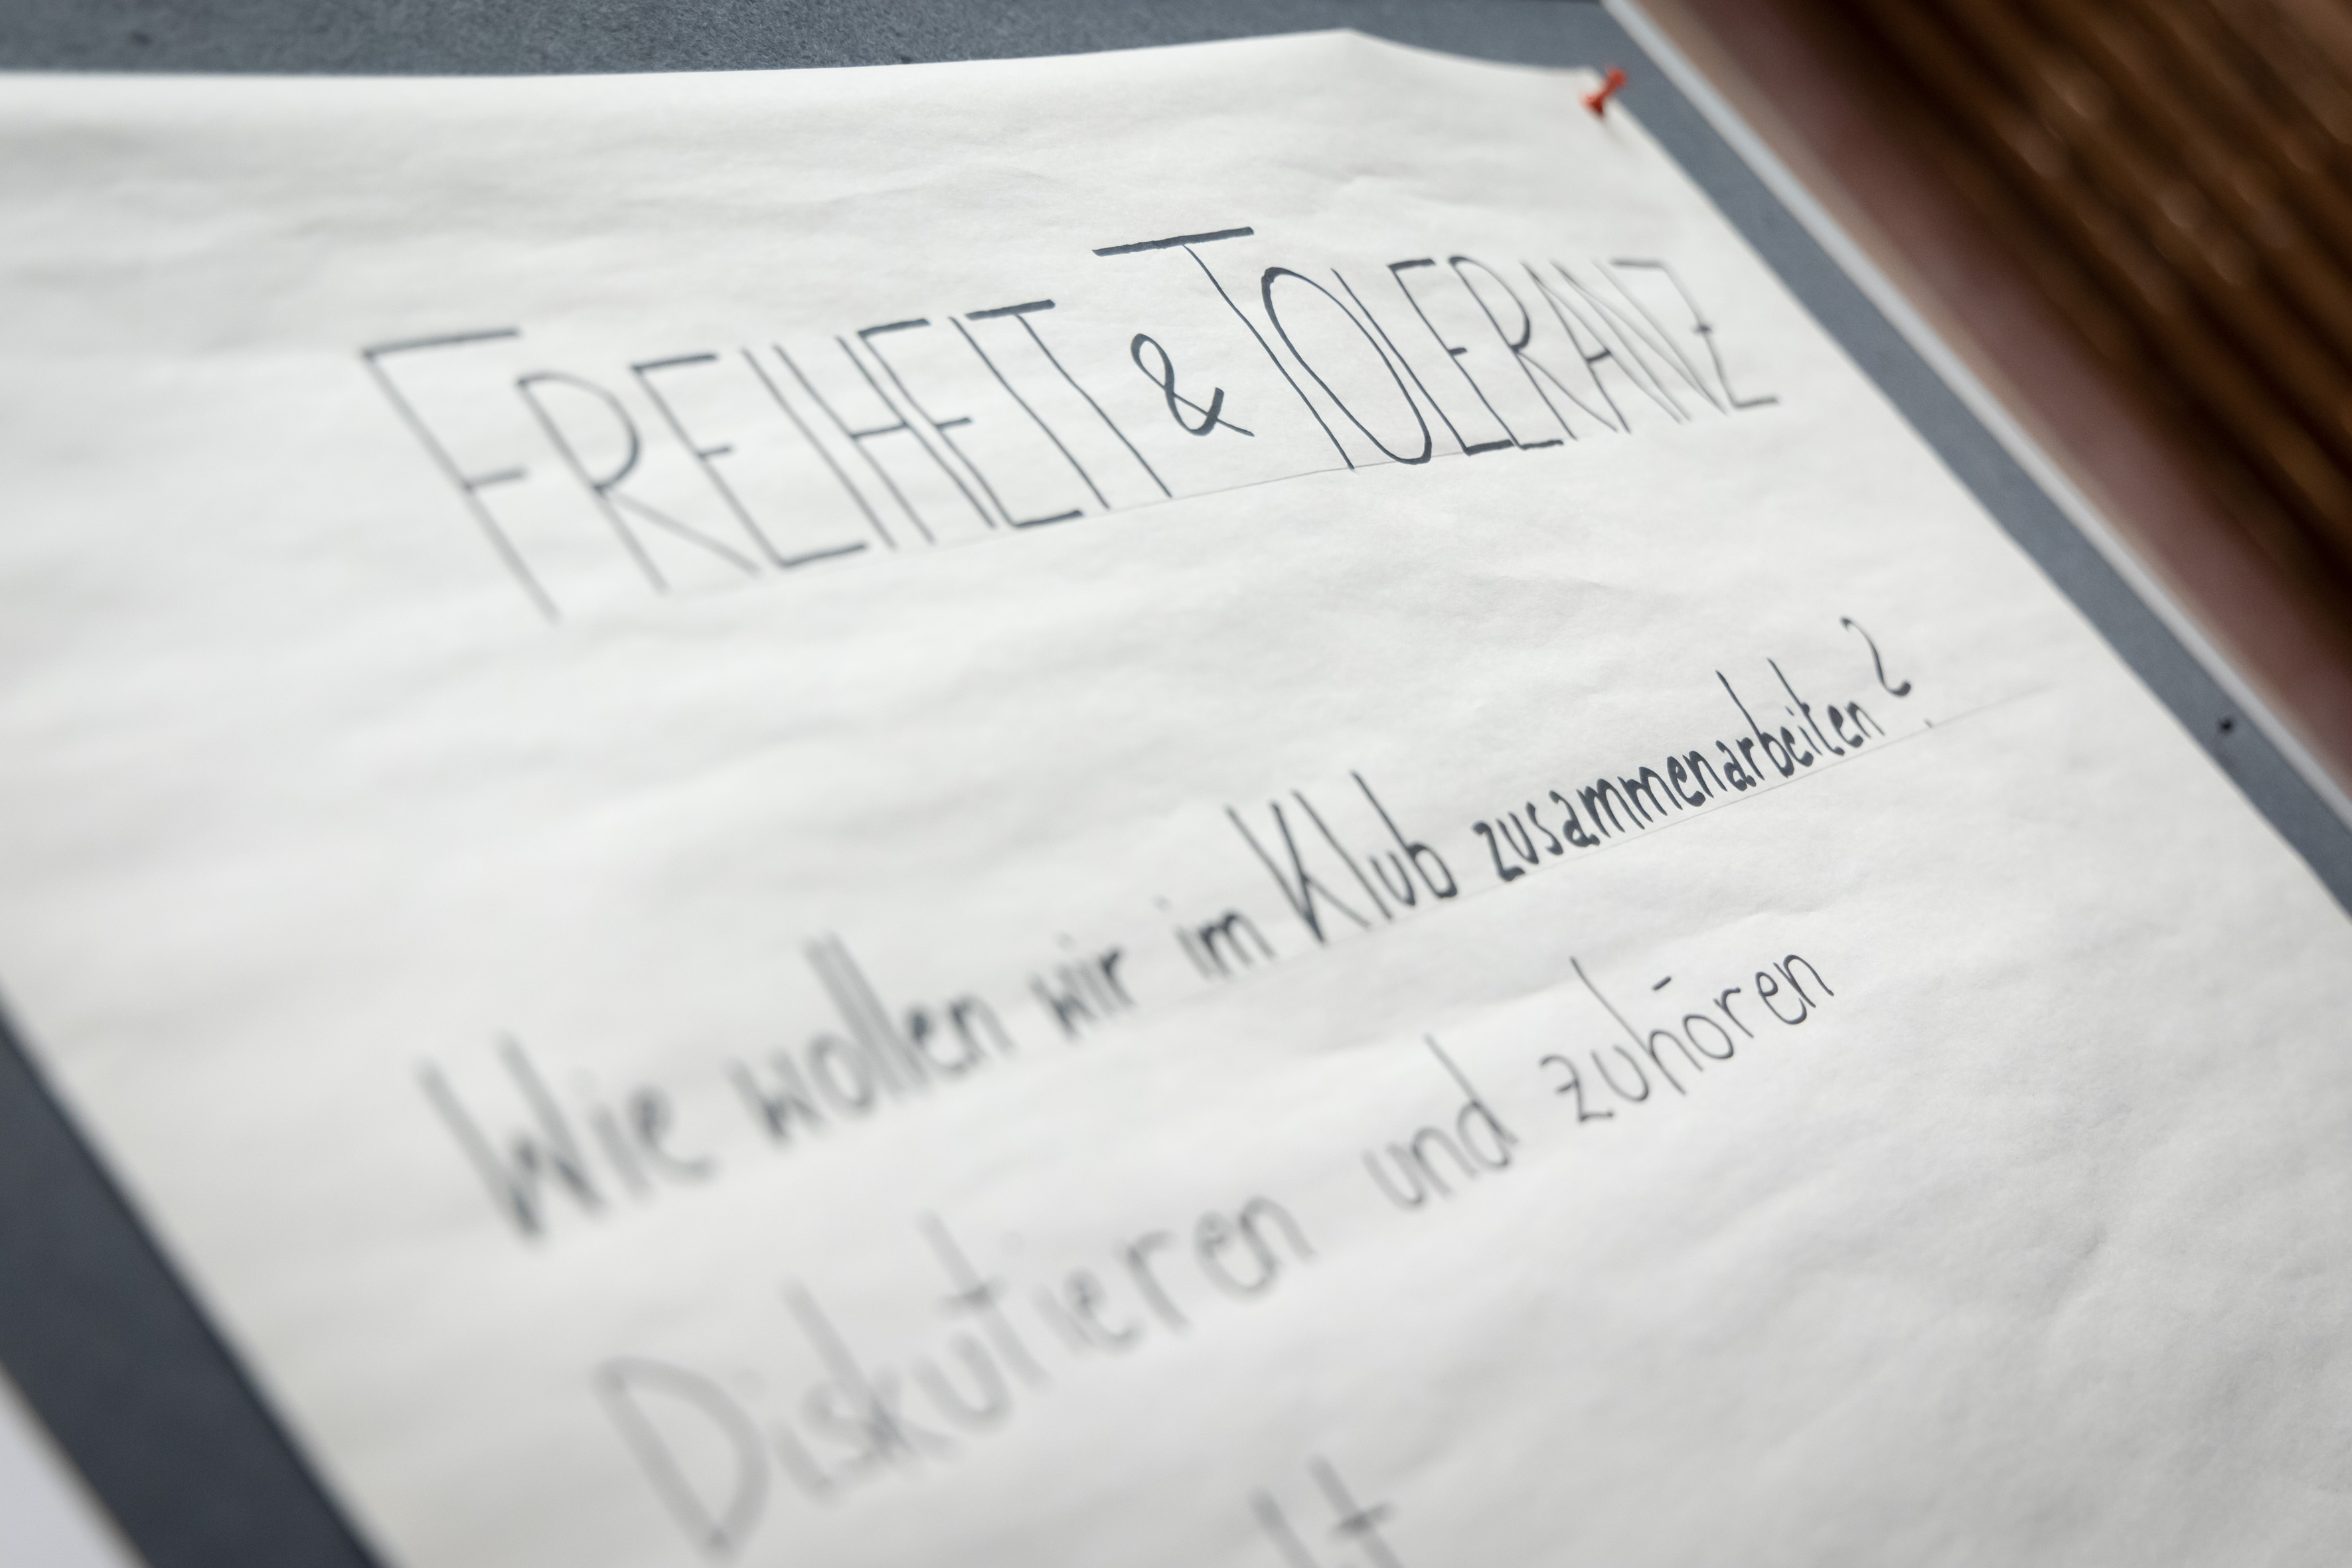 FREIHEIT & TOLERANZ
Wie wollen wir im Klub zusammenarbeiten?
Diskutieren und zuhören